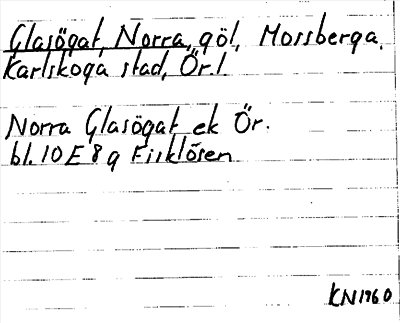 Glasögat, Norra, göl, Mossberga,
Karlskoga stad, Ör.l.
Norra Glasögat ek Ör.
bl. 10E 8g Fisklösen
KN1960